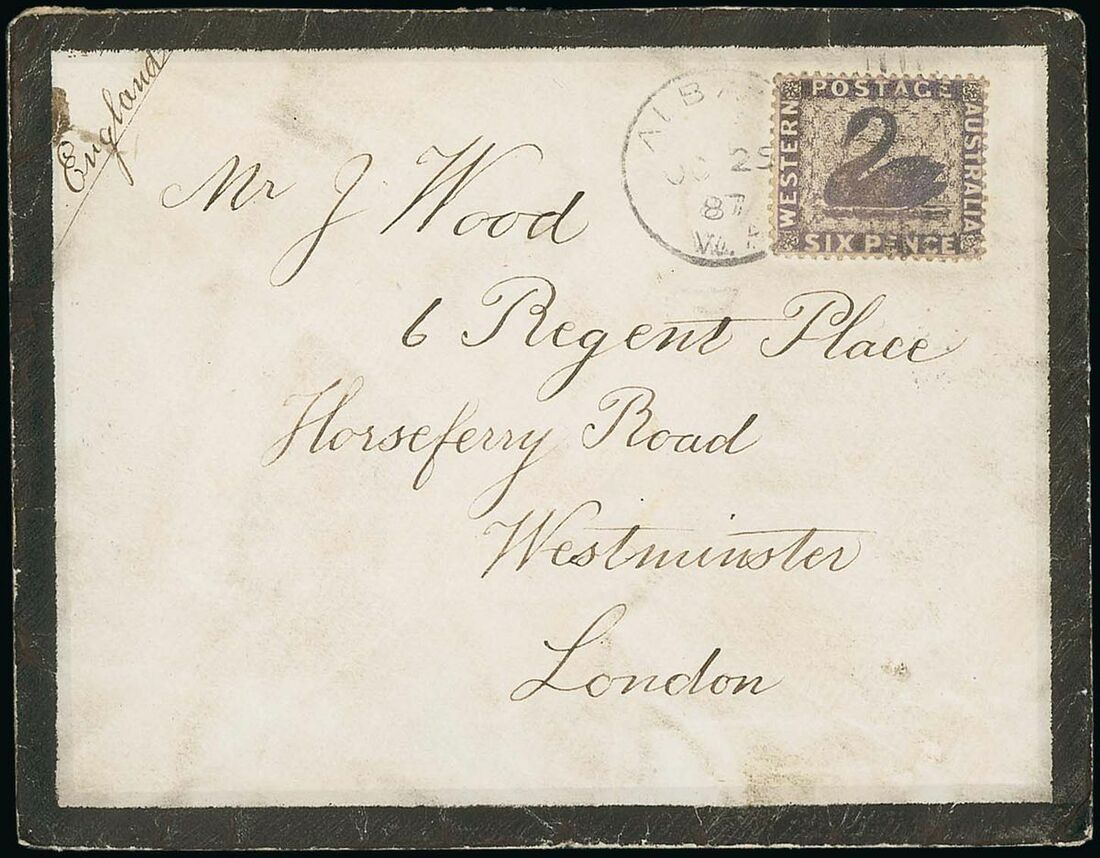 England
ALBA
25
87
W.A
POSTAGE
WESTERN
AUSTRALIA
SIX PENCE
Mr J Wood
6 Regent Place
Horseferry Road
Westminster
London